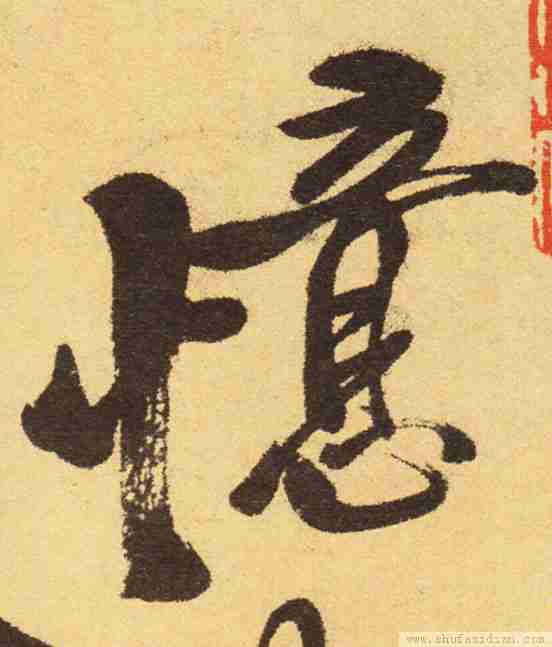 憶
www.shufazidian.com